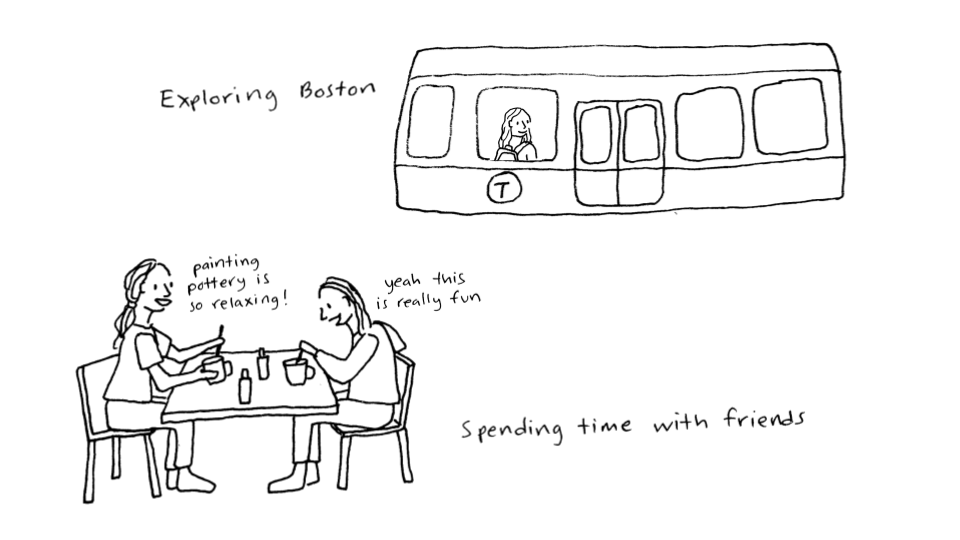 Exploring Boston
T
painting
pottery is
so relaxing!
yeah this
is really fun
Spending time with friends